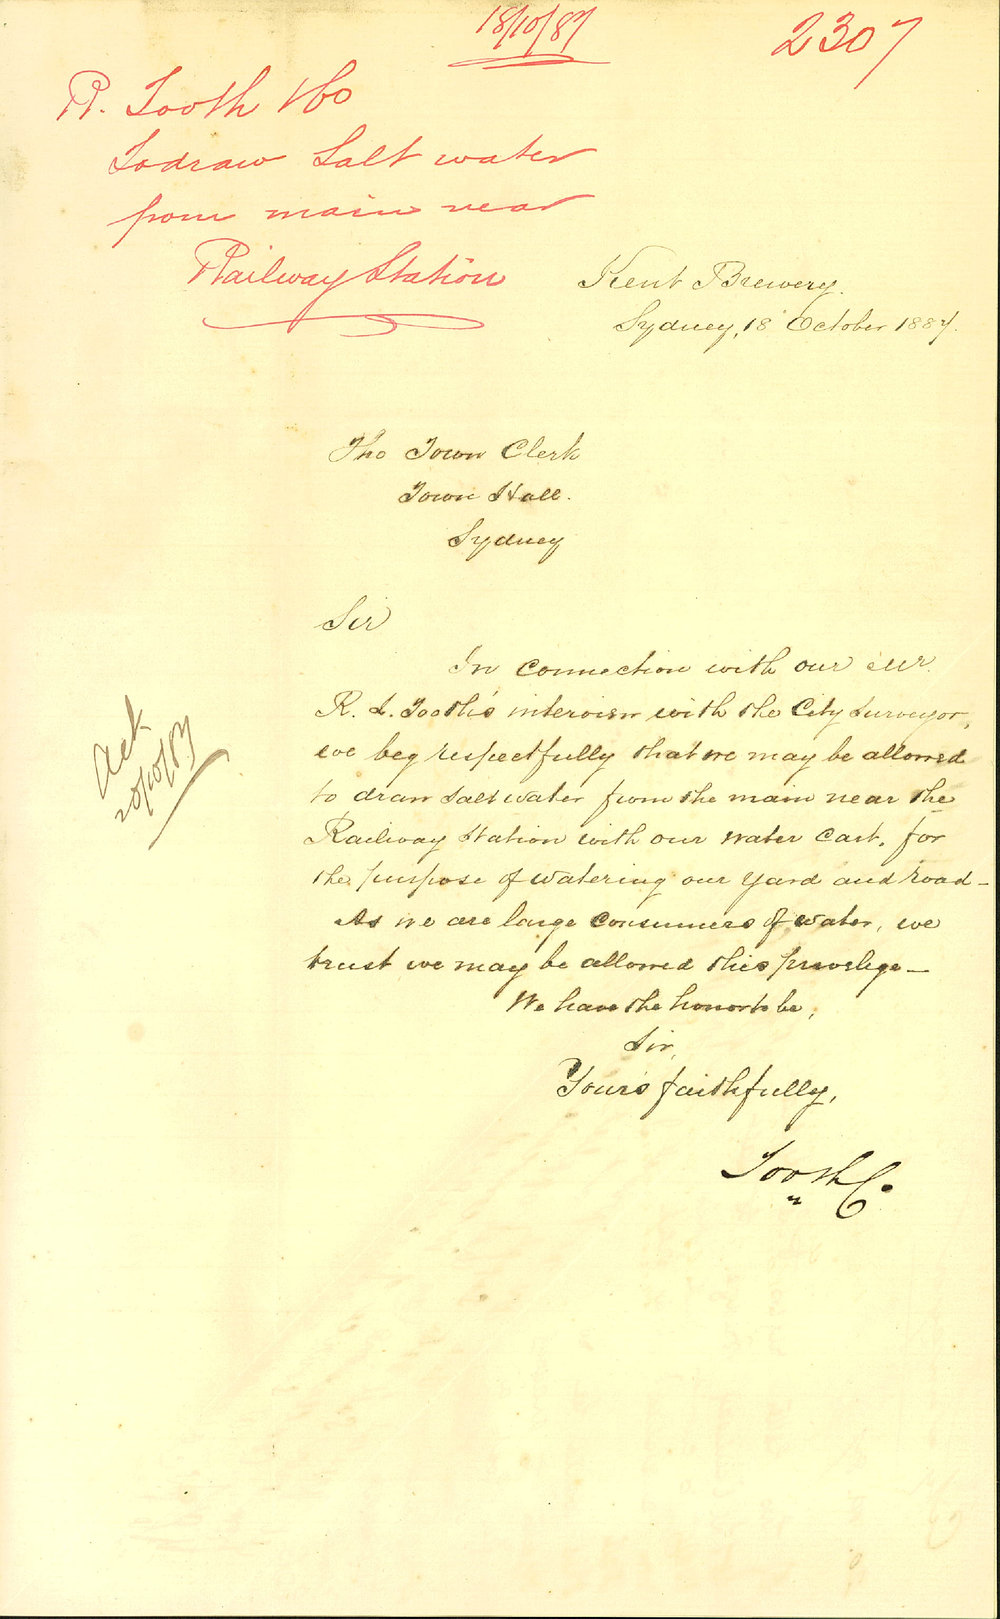 18/10/87
2307
R. Tooth & Co
To draw Salt water
from main near
Railway Station
Kent Brewery.
Sydney, 18 October 1887.
The Town Clerk
Town Hall.
Sydney
Sir
In connection with our Mr.
R. L. Tooth's interview with the City Surveyor,
we beg respectfully that we may be allowed
to draw salt water from the main near the
Railway Station with our water cart, for
the purpose of watering our yard and road—
As we are large consumers of water, we
trust we may be allowed this privelege—
We have the honor to be,
Sir,
Yours faithfully,
Tooth & Co.
Ack
20/10/87